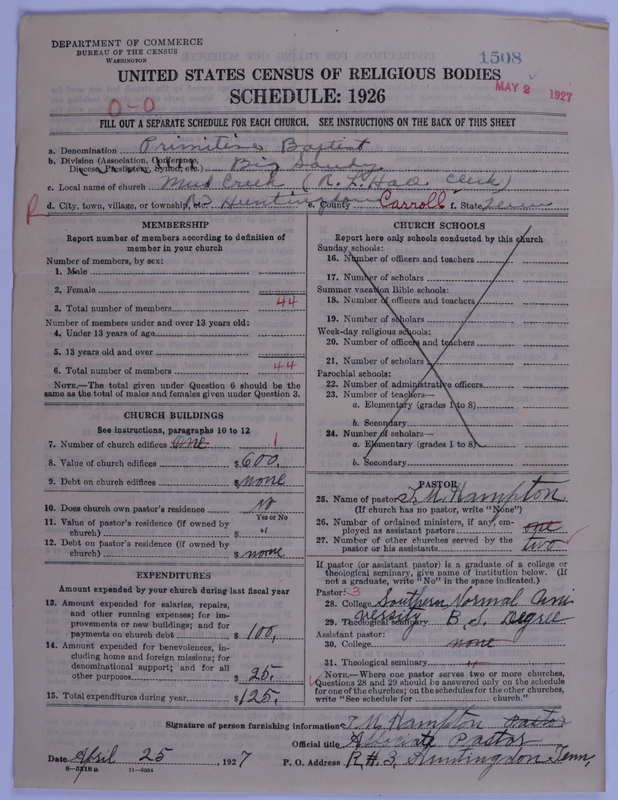 DEPARTMENT OF COMMERCE
BUREAU OF THE CENSUS
WASHINGTON
1508
UNITED STATES CENSUS OF RELIGIOUS BODIES
MAY 2 1927
SCHEDULE: 1926
0-0
FILL OUT A SEPARATE SCHEDULE FOR EACH CHURCH. SEE INSTRUCTIONS ON THE BACK OF THIS SHEET
a. Denomination Primitive Baptist
b. Division (Association, Conference, Diocese, Presbytery, Synod, etc.) Big Sandy
c. Local name of church Mud Creek (R. L. Hall Clerk)
R d. City, town, village, or township, etc. Huntingdon e. County Carroll f. State Tenn
MEMBERSHIP
Report number of members according to definition of
member in your church
Number of members, by sex:
1. Male
2. Female
3. Total number of members 44
Number of members under and over 13 years old:
4. Under 13 years of age
5. 13 years old and over
6. Total number of members 44
NOTE.—The total given under Question 6 should be the
same as the total of males and females given under Question 3.
CHURCH BUILDINGS
See instructions, paragraphs 10 to 12
7. Number of church edifices one 1
8. Value of church edifices $600.
9. Debt on church edifices $none
10. Does church own pastor's residence No
Yes or No
11. Value of pastor's residence (if owned by
church) $ "
12. Debt on pastor's residence (if owned by
church) $none
EXPENDITURES
Amount expended by your church during last fiscal year
13. Amount expended for salaries, repairs,
and other running expenses; for im-
provements or new buildings; and for
payments on church debt $100,
14. Amount expended for benevolences, in-
cluding home and foreign missions; for
denominational support; and for all
other purposes $25.
15. Total expenditures during year $125.
CHURCH SCHOOLS
Report here only schools conducted by this church
Sunday schools:
16. Number of officers and teachers
17. Number of scholars
Summer vacation Bible schools:
18. Number of officers and teachers
19. Number of scholars
Week-day religious schools:
20. Number of officers and teachers
21. Number of scholars
Parochial schools:
22. Number of administrative officers
23. Number of teachers—
a. Elementary (grades 1 to 8)
b. Secondary
24. Number of scholars—
a. Elementary (grades 1 to 8)
b. Secondary
PASTOR
25. Name of pastor T. M. Hampton
(If church has no pastor, write "None")
26. Number of ordained ministers, if any, em-
ployed as assistant pastors one
27. Number of other churches served by the
pastor or his assistants two
If pastor (or assistant pastor) is a graduate of a college or
theological seminary, give name of institution below. (If
not a graduate, write "No" in the space indicated.)
Pastor: 3
28. College Southern Normal Uni
versity
29. Theological seminary B. S. Degree
Assistant pastor:
30. College none
31. Theological seminary "
NOTE.—Where one pastor serves two or more churches,
Questions 28 and 29 should be answered only on the schedule
for one of the churches; on the schedules for the other churches,
write "See schedule for church."
Signature of person furnishing information T. M. Hampton Pastor
Official title Associate Pastor
Date April 25, 1927 P. O. Address R#3, Huntingdon Tenn,
8—5318a 11—9064